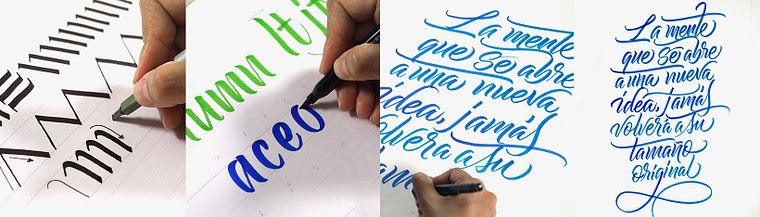 aceo
La mente
que se abre
a una nueva
idea, jamás
volverá a su
La mente
que se abre
a una nueva
idea, jamás
volverá a su
tamaño
original